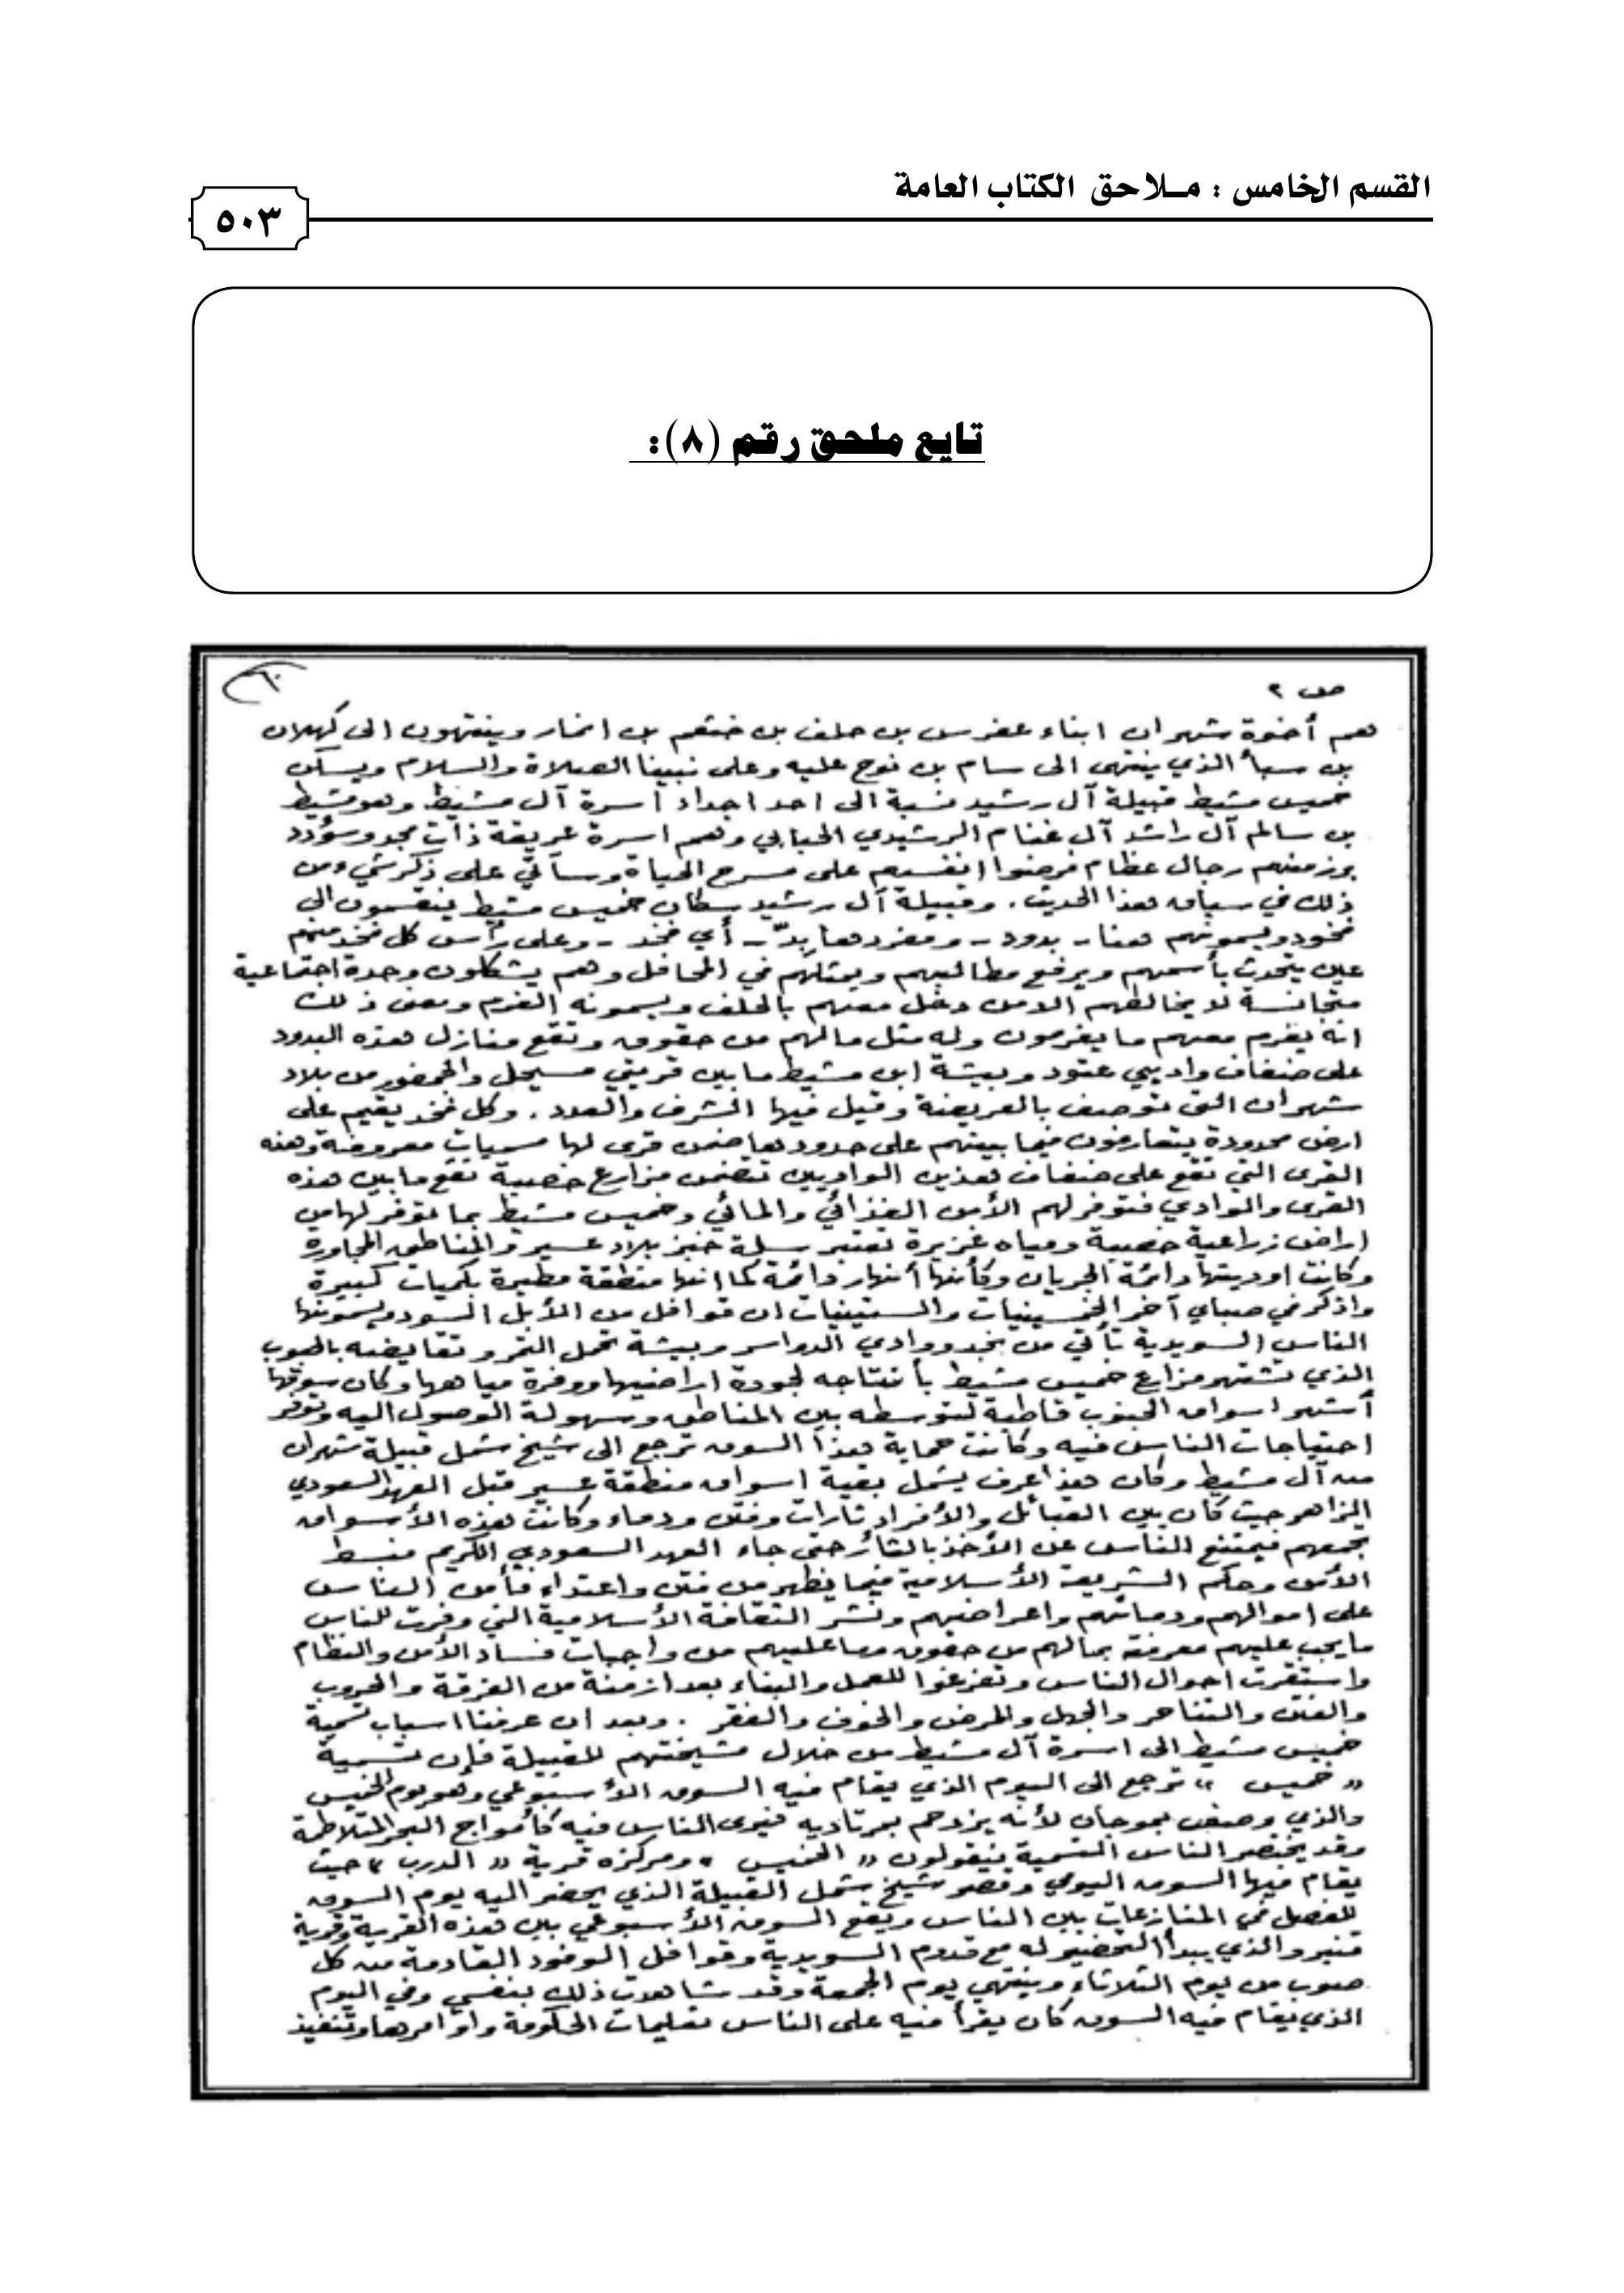 القسم الخامس : مـلاحق الكتاب العامة
٥٠٣
تابع ملحق رقم (٨):
ص ٢
هم أخوة شهران ابناء عفرس بن حلف بن خثعم بن انمار وينتهون الى كهلان
بن سبأ الذي ينتهى الى سام بن نوح عليه وعلى نبينا الصلاة والسلام ويسكن
خميس مشيط قبيلة آل رشيد نسبة الى احد اجداد أسرة آل مشيط وهو مشيط
بن سالم آل راشد آل غنام الرشيدي الحبابي وهم اسرة عريقة ذات مجد وسؤدد
برز منهم رجال عظام فرضوا انفسهم على مسرح الحياة وسآتي على ذكر شيء من
ذلك في سياق هذا الحديث . وقبيلة آل رشيد سكان خميس مشيط ينقسمون الى
فخوذ ويسمونهم هنا - بدود - ومفردها بِدّ - أي فخذ - وعلى رأس كل فخذ منهم
عين يتحدث بأسمهم ويرفع مطالبهم ويمثلهم في المحافل وهم يشكلون وحدة اجتماعية
متجانسة لا يخالطهم الا من دخل معهم بالحلف ويسمونه الغرم ومعنى ذلك
انه يغرم معهم ما يغرمون وله مثل مالهم من حقوق وتقع منازل هذه البدود
على ضفاف واديي عتود وبيشة ابن مشيط ما بين قريتي مسيحل والمحضور من بلاد
شهران التي توصف بالعريضة وقيل فيها الشرف والعدد . وكل فخذ يقيم على
ارض محدودة يتعارفون فيما بينهم على حدودها ضمن قرى لها مسميات معروفة وهذه
القرى التي تقع على ضفاف هذين الواديين تتضمن مزارع خصبة تقع ما بين هذه
القرى والوادي فتوفر لهم الأمن الغذائي والمائي وخميس مشيط بما توفر لها من
اراض زراعية خصبة ومياه غزيرة تعتبر سلة خبز بلاد عسير والمناطق المجاورة
وكانت اوديتها دائمة الجريان وكأنها أنهار دائمة كما انها منطقة مطيرة بكميات كبيرة
واذكر في صباي آخر الخمسينيات والستينيات ان قوافل من الأبل السود ويسمونها
الناس السويدية تأتي من نجد ووادي الدواسر وبيشة تحمل التمر وتقايضه بالحبوب
الذي تشتهر مزارع خميس مشيط بأنتاجه لجودة اراضيها ووفرة مياهها وكان سوقها
أشهر اسواق الجنوب قاطبة لتوسطه بين المناطق وسهولة الوصول اليه وتوفر
احتياجات الناس فيه وكانت حماية هذا السوق ترجع الى شيخ شمل قبيلة شهران
من آل مشيط وكان هذا عرف يشمل بقية اسواق منطقة عسير قبل العهد السعودي
الزاهر حيث كان بين القبائل والأفراد ثارات وفتن ودماء وكانت هذه الأسواق
تجمعهم فيمتنع الناس عن الأخذ بالثأر حتى جاء العهد السعودي الكريم فبسط
الأمن وحكم الشريعة الأسلامية فيما يظهر من فتن واعتداء فأمن الناس
على اموالهم ودمائهم واعراضهم ونشر الثقافة الأسلامية التي وفرت للناس
ما يجب عليهم معرفة بمالهم من حقوق وما عليهم من واجبات فساد الأمن والنظام
واستقرت احوال الناس وتفرغوا للعمل والبناء بعد ازمنة من الفرقة والحروب
والفتن والتناحر والجهل والمرض والخوف والفقر . وبعد ان عرفنا اسباب تسمية
خميس مشيط الى اسرة آل مشيط من خلال مشيختهم للقبيلة فإن تسمية
« خميس » ترجع الى اليوم الذي يقام فيه السوق الأسبوعي وهو يوم الخميس
والذي وصف بموجان لأنه يزدحم بمرتاديه فيرى الناس فيه كأمواج البحر المتلاطمة
وقد يختصر الناس التسمية فيقولون « الخميس » ومركزه قرية « الدرب » حيث
يقام فيها السوق اليومي وقصر شيخ شمل القبيلة الذي يحضر اليه يوم السوق
للفصل في المنازعات بين الناس ويقع السوق الأسبوعي بين هذه القرية وقرية
قنبر والذي يبدأ التحضير له مع قدوم السويدية وقوافل الوفود القادمة من كل
صوب من يوم الثلاثاء وينتهي يوم الجمعة وقد شاهدت ذلك بنفسي وفي اليوم
الذي يقام فيه السوق كان يقرأ فيه على الناس تعليمات الحكومة واوامرها وتنفيذ